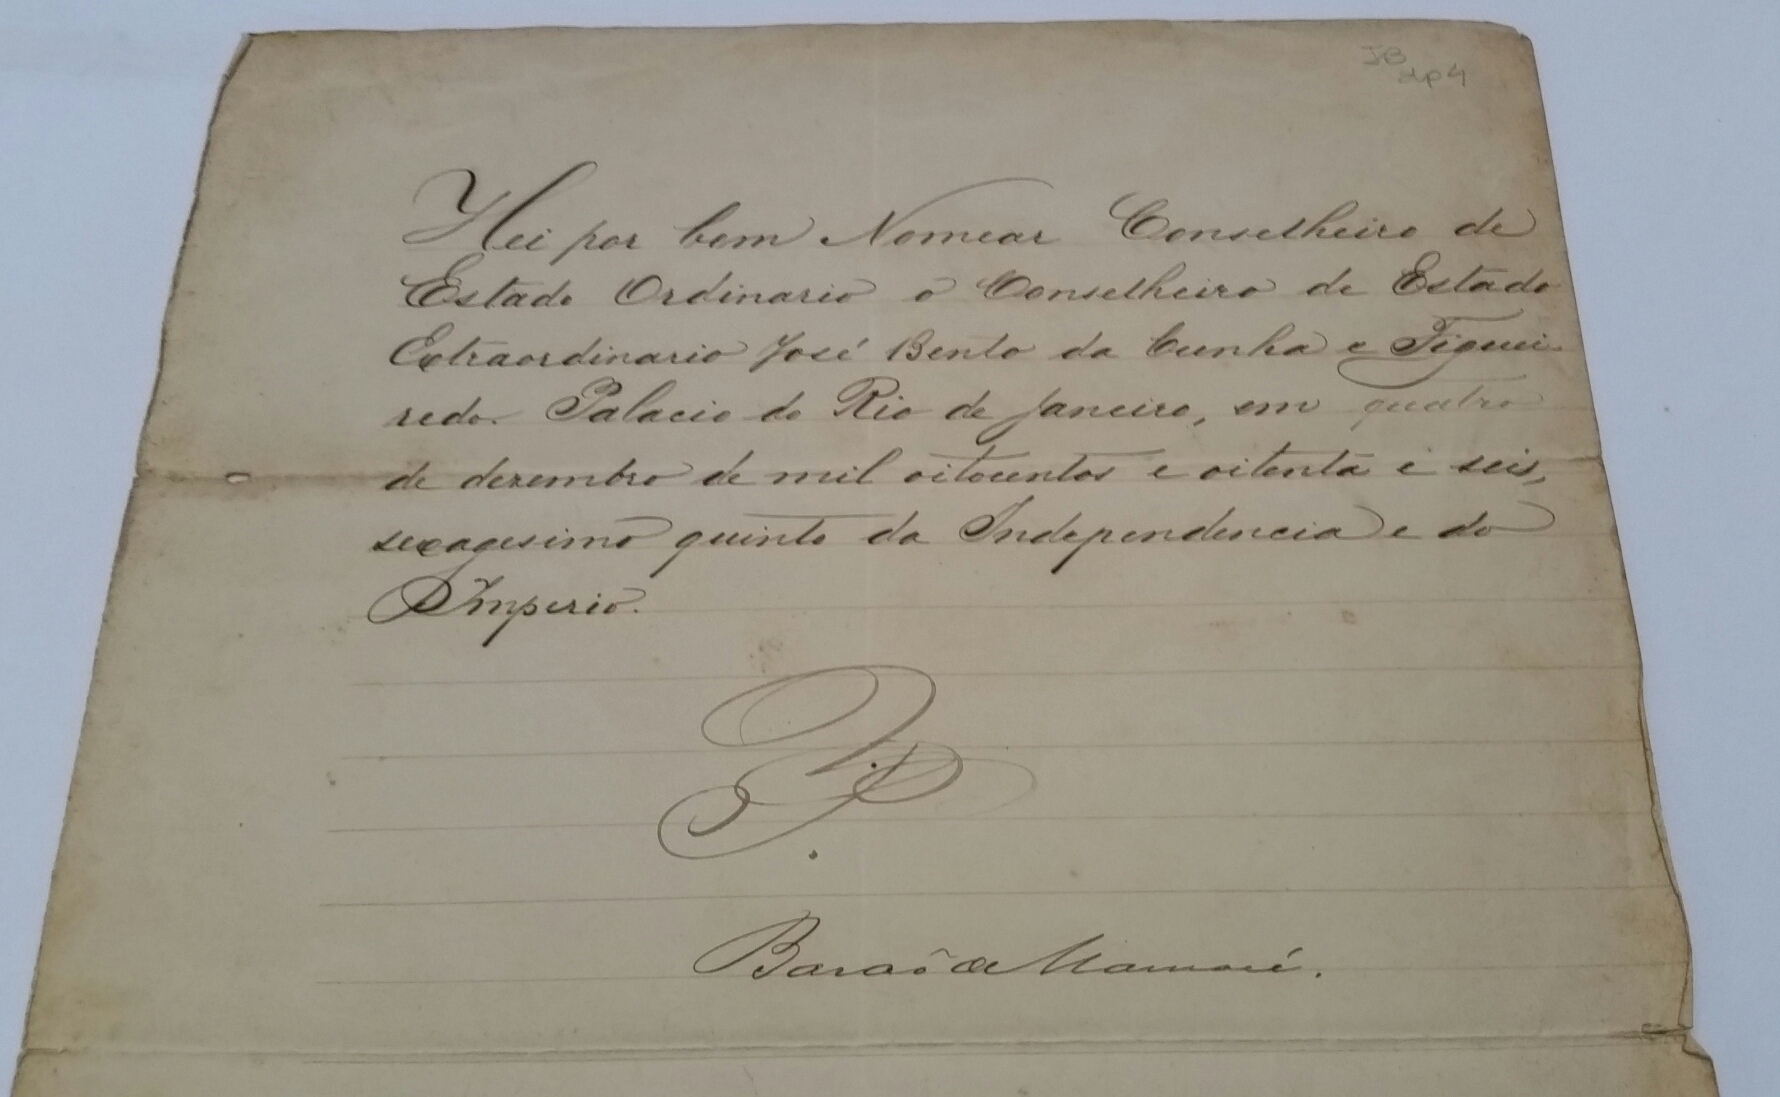 JB
dp 4
Hei por bem Nomear Conselheiro de
Estado Ordinario o Conselheiro de Estado
Extraordinario José Bento da Cunha e Figuei-
redo. Palacio do Rio de Janeiro, em quatro
de dezembro de mil oitocentos e oitenta e seis,
sexagesimo quinto da Independencia e do
Imperio.
Barão de Mamoré.